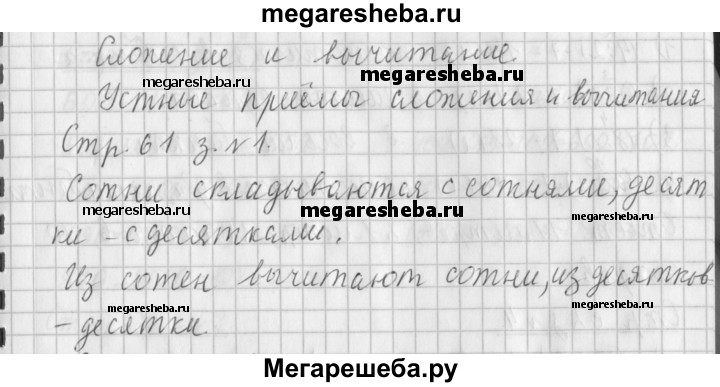 megaresheba.ru
Сложение и вычитание.
megaresheba.ru megaresheba.ru megaresheba.ru
Устные приёмы сложения и вычитания
Стр. 61 з. №1.
Сотни складываются с сотнями, десят
megaresheba.ru megaresheba.ru megaresheba.ru
ки – с десятками.
Из сотен вычитают сотни, из десятков
megaresheba.ru megaresheba.ru megaresheba.ru
– десятки.
Мегарешеба.ру